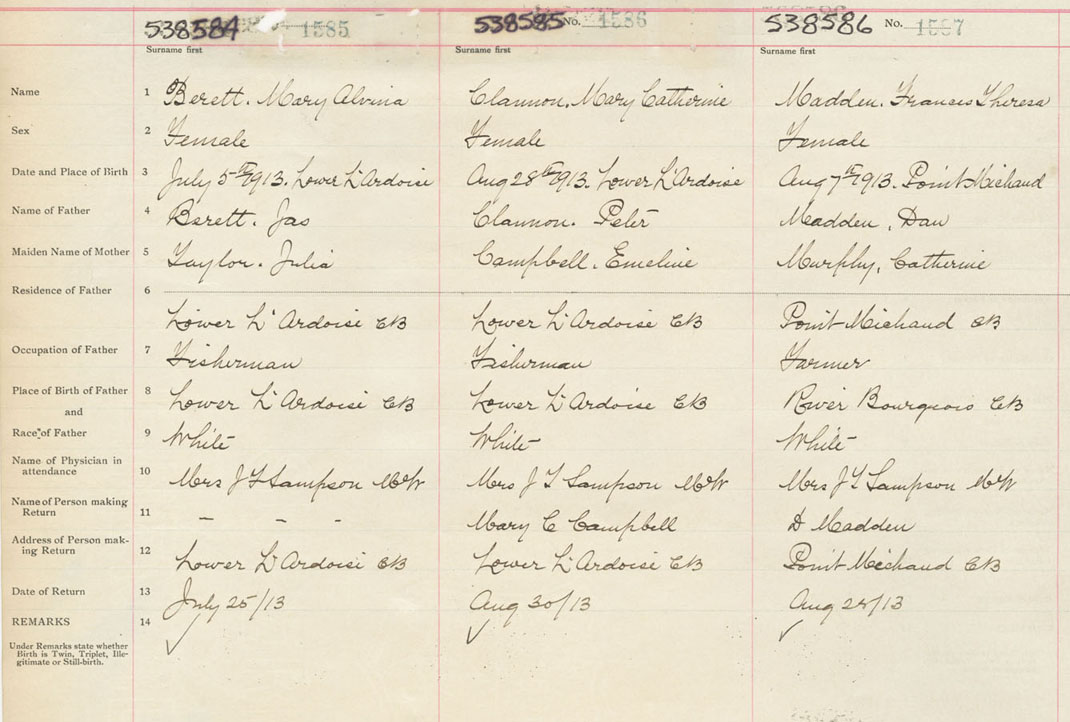 538584 1585 538585 No. 1586 538586 No. 1587
Surname first Surname first Surname first
Name 1 Berett. Mary Alvina Clannon. Mary Catherine Madden. Francis Theresa
Sex 2 Female Female Female
Date and Place of Birth 3 July 5th 1913. Lower L'Ardoise Aug 28th 1913. Lower L'Ardoise Aug 7th 1913. Point Michaud
Name of Father 4 Berett. Jas Clannon. Peter Madden, Dan
Maiden Name of Mother 5 Taylor. Julia Campbell. Emeline Murphy, Catherine
Residence of Father 6
Lower L'Ardoise CB Lower L'Ardoise CB Point Michaud CB
Occupation of Father 7 Fisherman Fisherman Farmer
Place of Birth of Father 8 Lower L'Ardoise CB Lower L'Ardoise CB River Bourgeois CB
and
Race of Father 9 White White White
Name of Physician in
attendance 10 Mrs J L Sampson MW Mrs J L Sampson MW Mrs J L Sampson MW
Name of Person making
Return 11 - - - Mary C Campbell D Madden
Address of Person mak-
ing Return 12 Lower L'Ardoise CB Lower L'Ardoise CB Point Michaud CB
Date of Return 13 July 25/13 Aug 30/13 Aug 28/13
REMARKS 14 ✓ ✓ ✓
Under Remarks state whether
Birth is Twin, Triplet, Ille-
gitimate or Still-birth.